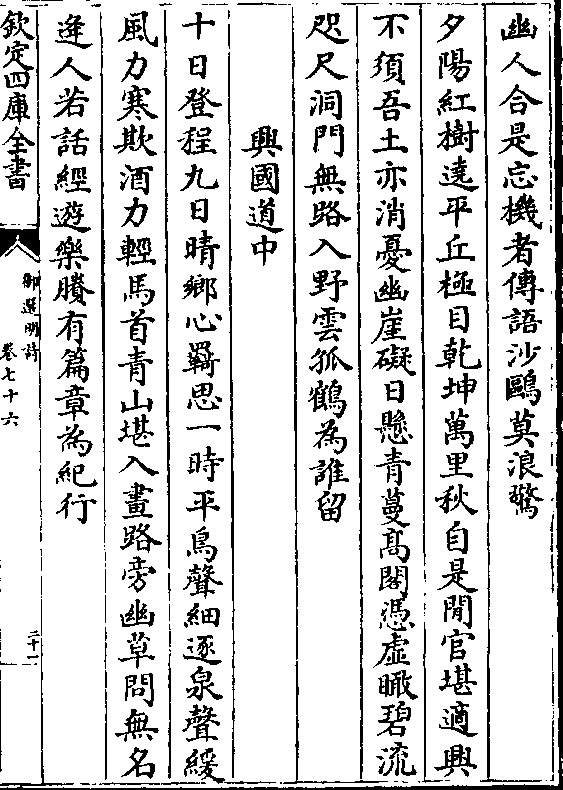 幽人合是忘機者傳語沙鷗莫浪驚
夕陽紅樹遶平丘極目乾坤萬里秋自是閒官堪適興
不須吾土亦消憂幽崖礙日懸青蔓髙閣憑虛瞰碧流
咫尺洞門無路入野雲孤鶴為誰留
興國道中
十日登程九日晴鄉心羇思一時平鳥聲細逐泉聲緩
風力寒欺酒力輕馬首青山堪入畫路旁幽草問無名
逢人若話經遊樂賸有篇章為紀行
欽定四庫全書
御選明詩
卷七十六
二十一